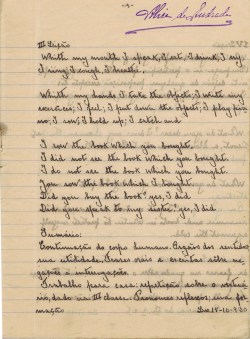 III Lição
Whith my mouth I speak, I eat, I drink, I sig
I sing, I cough, I breathe,
Whith my hands I take the objects; I write my
exercises; I feel; I put down the objects; I play pia-
no; I sew; I hold up; I catch and
I saw the book which you bought.
I did not see the book which you bought.
I do not see the book which you bought.
You saw the book which I bought.
Did you buy the book? yes, I did
Did you speak to my sister? yes, I did
Sumário:
Continuação do corpo humano. Orgãos dos sentidos
sua utilidade. Frases orais e escritas sobre ne-
gações e interrogações.
Trabalho para casa: repetição sobre o vocabu-
lário, dado na III classe. Pronomes reflexos, sua for-
mação